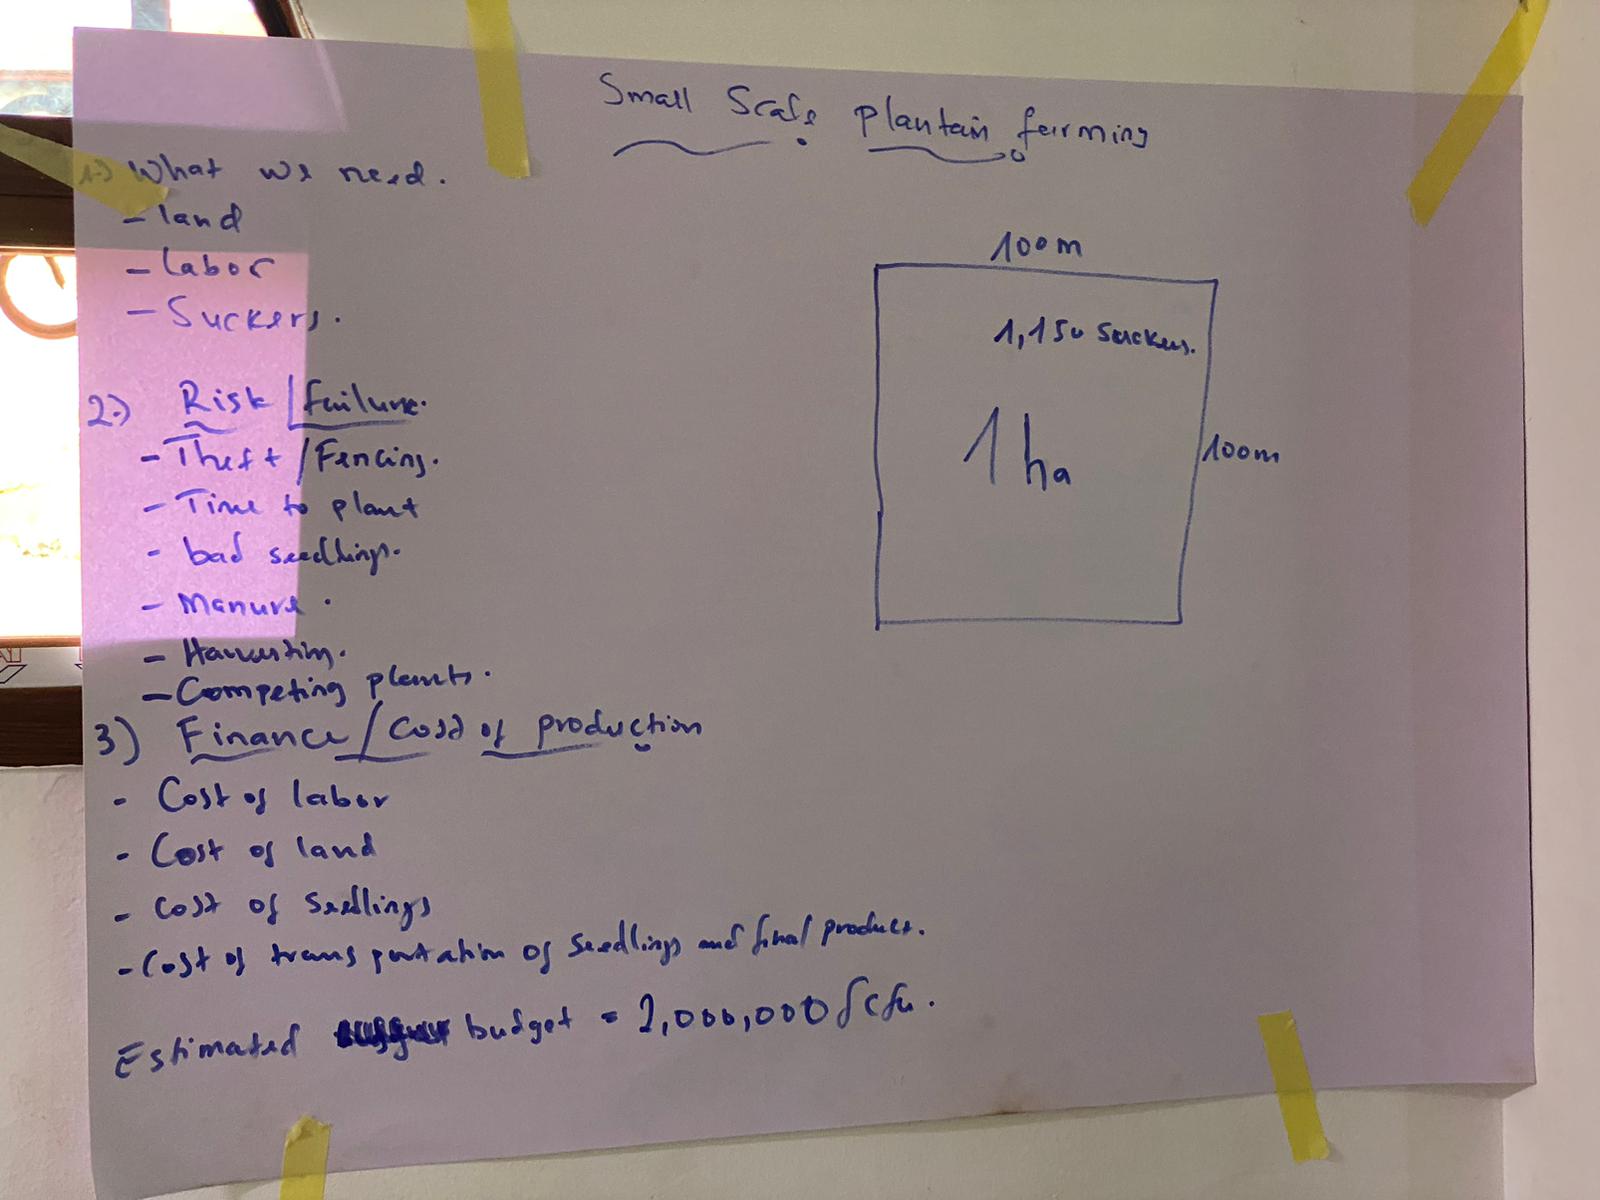 Small Scale plantain farming
1.) What we need.
- land
- Labor
- Suckers.
100m
1,150 suckers.
1 ha
100m
2.) Risk / failure.
- Theft / Fencing.
- Time to plant
- bad seedlings.
- Manure.
- Harvesting.
- Competing plants.
3) Finance / Cost of production
- Cost of labor
- Cost of land
- Cost of Seedlings
- Cost of transportation of Seedlings and final product.
Estimated budget = 2,000,000 fcfa.